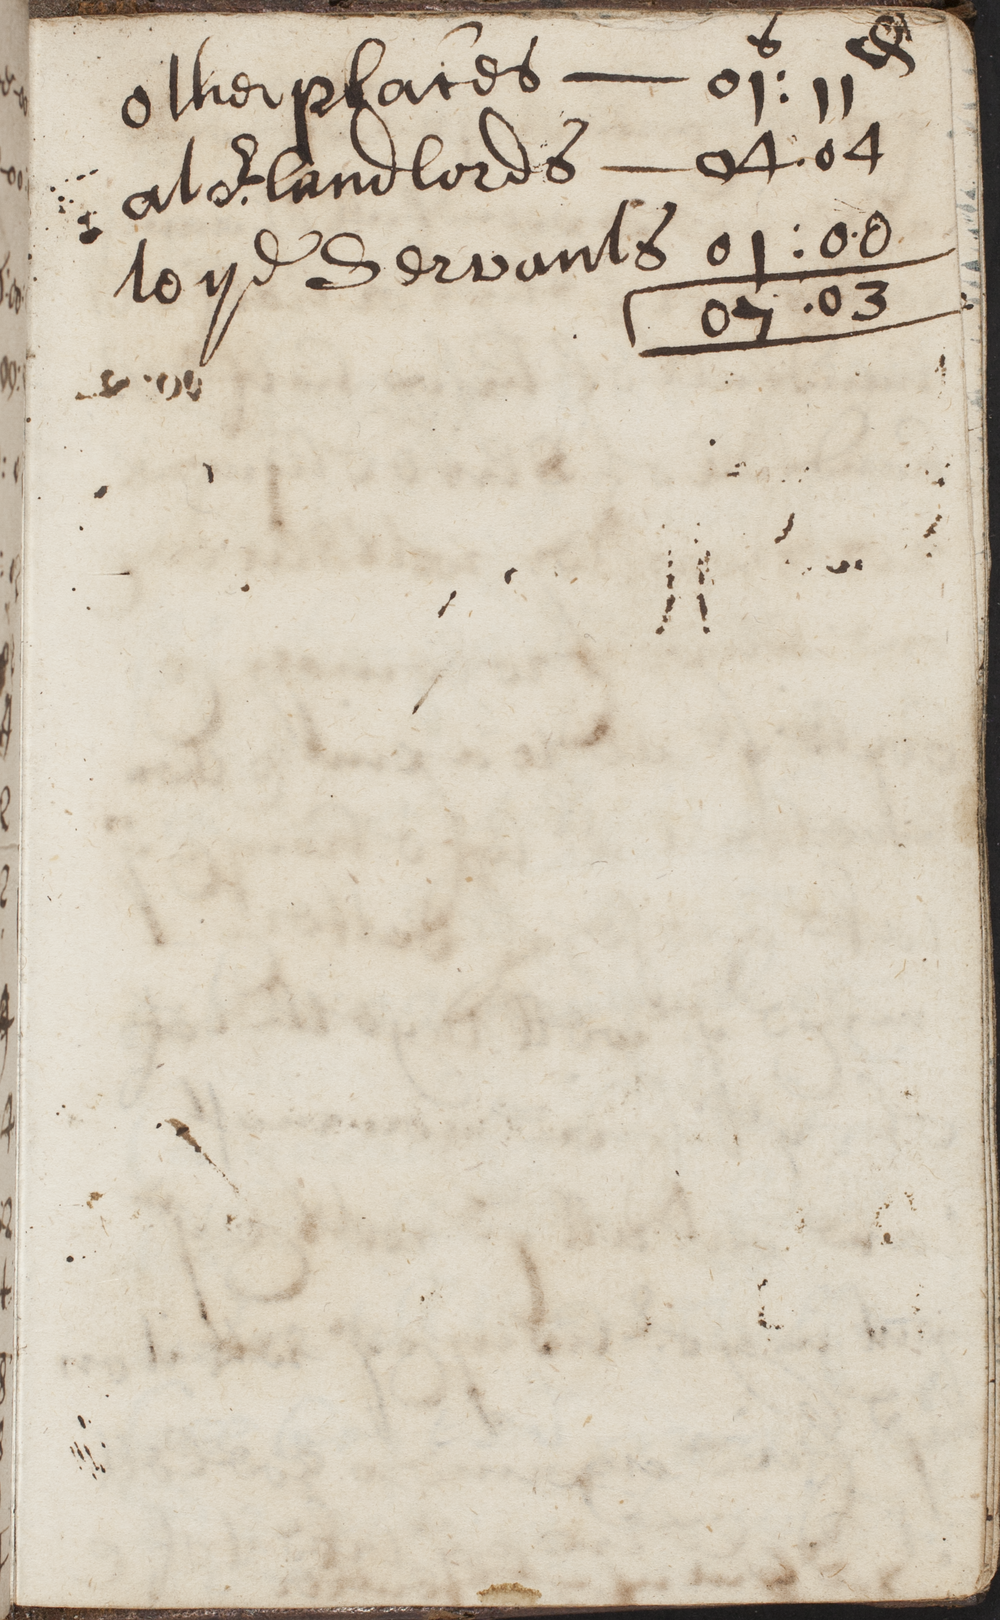 other places — 01 : 11
at yr landlords — 04 . 04
to ye Servants 01 : 00
07 . 03